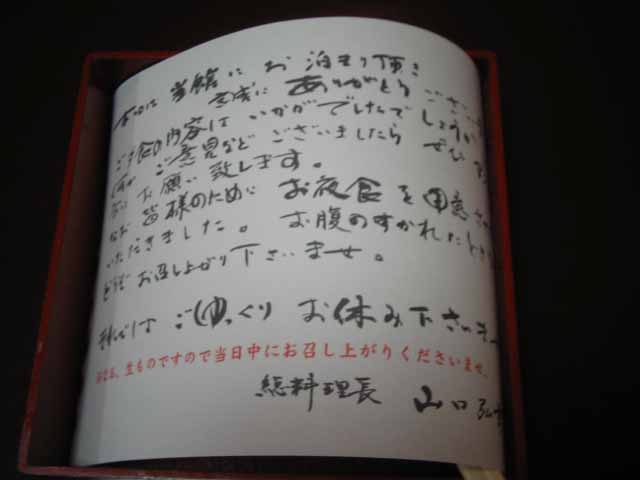 本日は 当館に お泊まり頂き
誠に ありがとうござい
ご夕食の内容は いかがでしたでしょうか
ご意見など ございましたら ぜひ
お願い致します。
なお 皆様のために お夜食を 用意させ
いただきました。 お腹のすかれたとき
どうぞ お召し上がり下さいませ。
それでは ごゆっくり お休み下さいま
なお、生ものですので当日中にお召し上がりくださいませ。
総料理長 山口